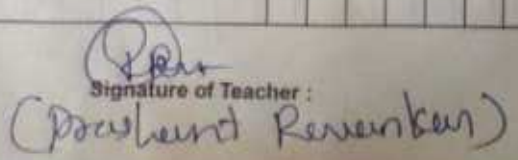 Signature of Teacher :
(Prashant Revankar)